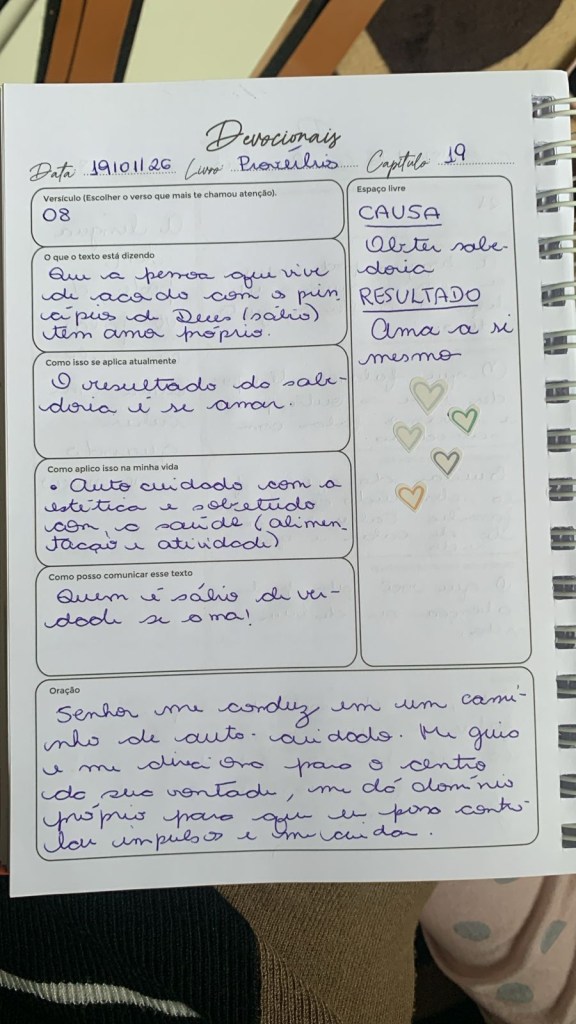 Devocionais
Data 19/01/26 Livro Provérbios Capítulo 19
Versículo (Escolher o verso que mais te chamou atenção).
08
O que o texto está dizendo
Que a pessoa que vive
de acordo com o prin
cípios de Deus (sábio)
têm amor próprio.
Como isso se aplica atualmente
O resultado da sabe-
doria é se amar.
Como aplico isso na minha vida
• Auto cuidado com a
estética e sobretudo
com a saúde (alimen-
tação e atividade)
Como posso comunicar esse texto
Quem é sábio de ver-
dade se ama!
Espaço livre
CAUSA
Obter sabe-
doria
RESULTADO
Ama a si
mesmo
Oração
Senhor me conduz em um cami-
nho de auto-cuidado. Me guia
e me direciona para o centro
da sua vontade, me dá domínio
próprio para que eu possa contro-
lar impulsos e me cuidar.